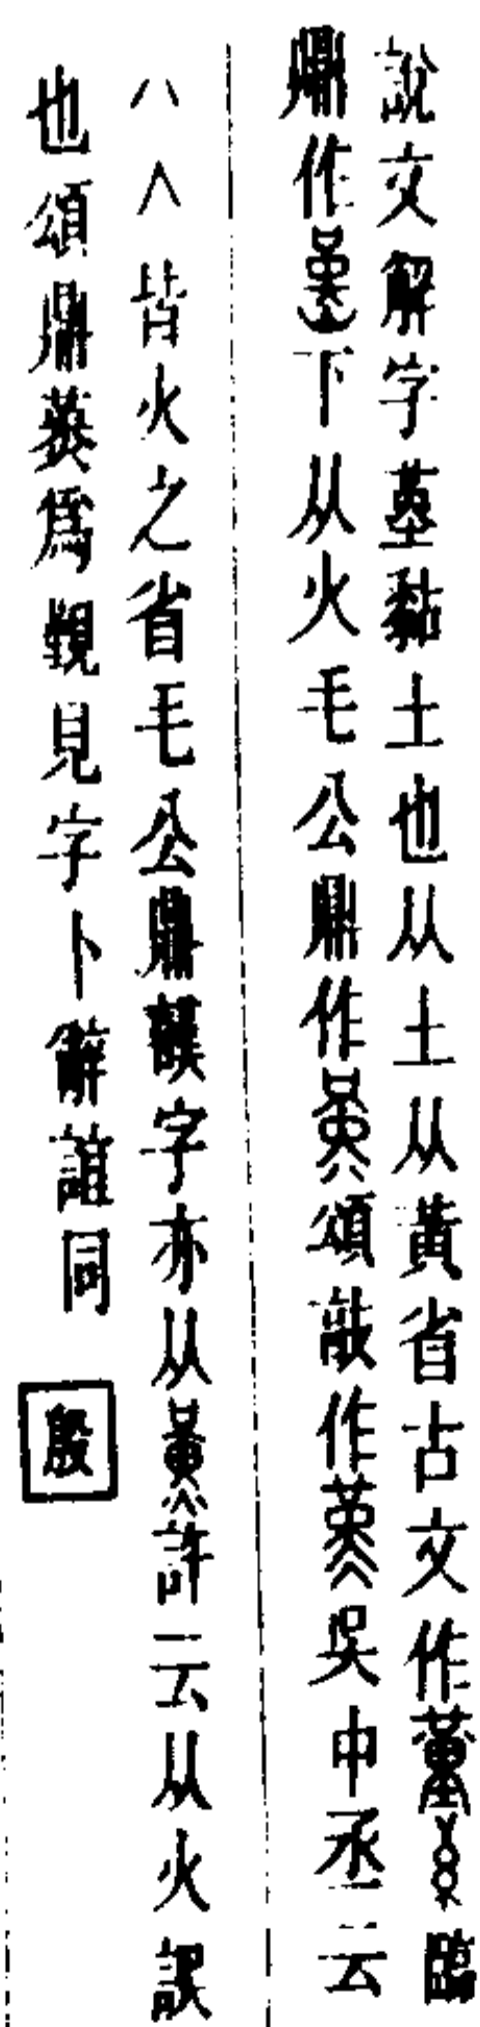 說文解字堇黏土也从土从黃省古文作
鼎作下从火毛公鼎作頌敲作吳中丞云
八人皆火之省毛公鼎字亦从許云从火誤
也頌鼎為覲見字卜辭誼同
殷